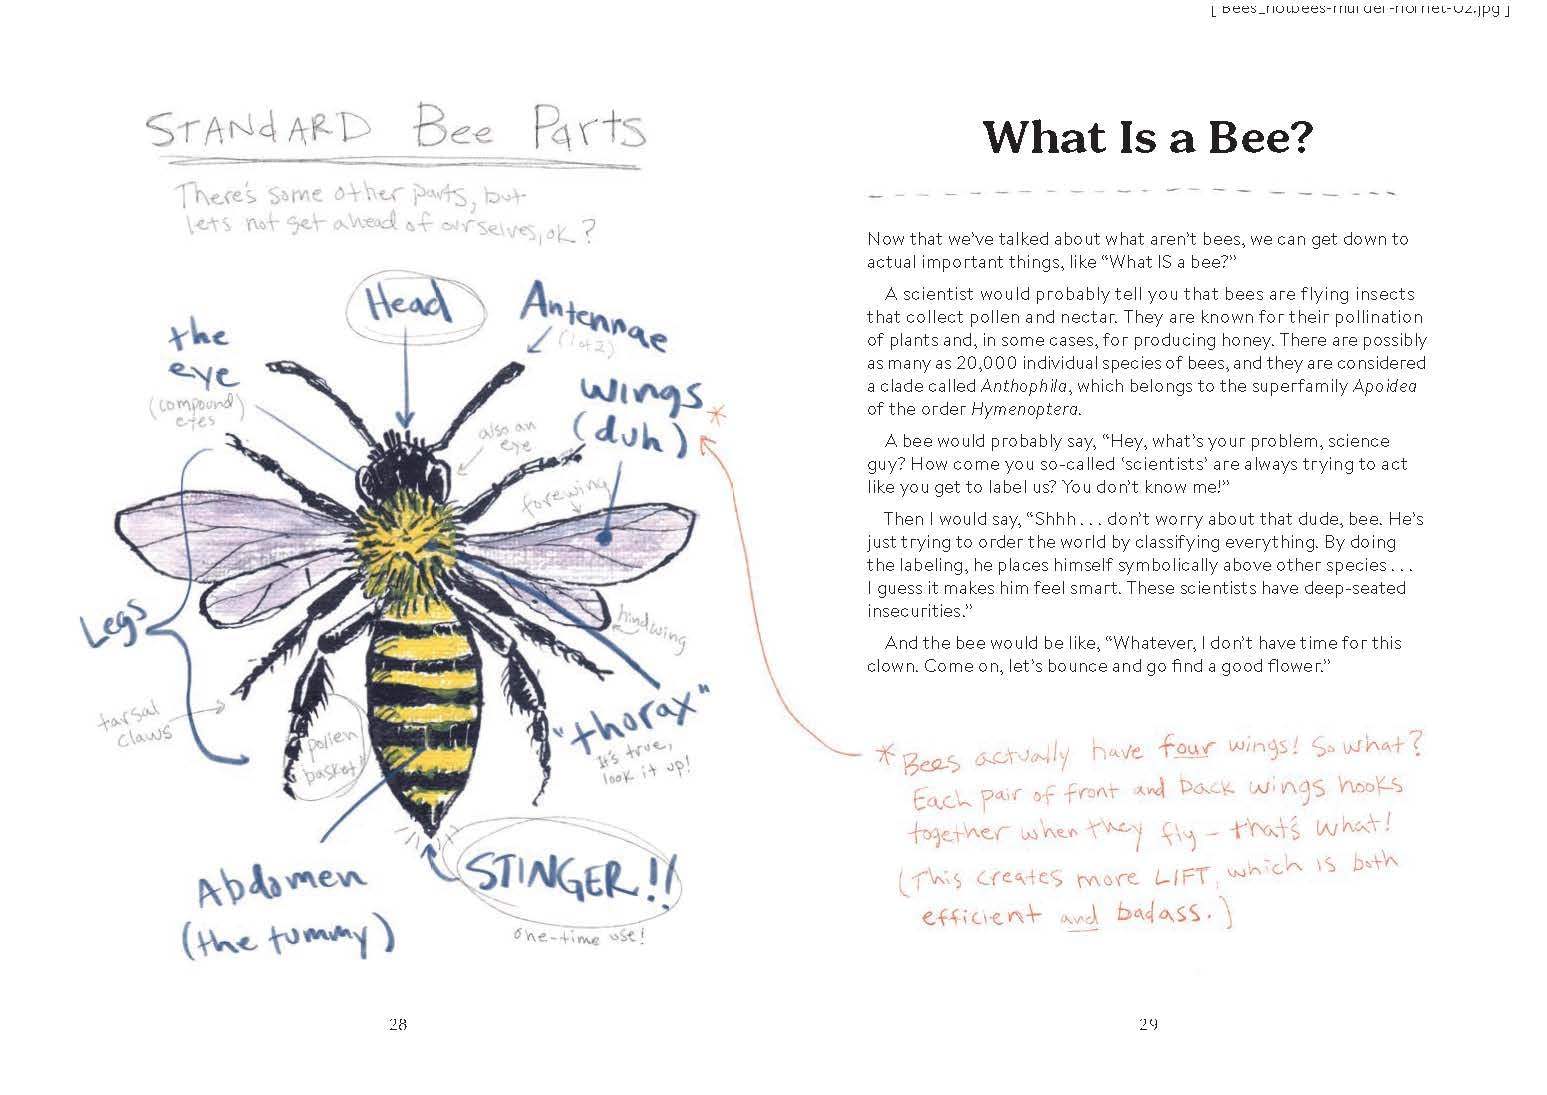 [ Bees_notbees-murder-hornet-02.jpg ]
STANdARD Bee Parts
There's some other parts, but
lets not get ahead of ourselves, ok?
Head
Antennae
(1 of 2)
the
eye
(compound)
eyes
wings*
(duh)
also an
eye
forewing
Legs
hindwing
tarsal
claws
pollen
basket
"thorax"
It's true,
look it up!
Abdomen
(the tummy)
STINGER!!
one-time use!
28
What Is a Bee?
Now that we’ve talked about what aren’t bees, we can get down to
actual important things, like “What IS a bee?”
A scientist would probably tell you that bees are flying insects
that collect pollen and nectar. They are known for their pollination
of plants and, in some cases, for producing honey. There are possibly
as many as 20,000 individual species of bees, and they are considered
a clade called Anthophila, which belongs to the superfamily Apoidea
of the order Hymenoptera.
A bee would probably say, “Hey, what’s your problem, science
guy? How come you so-called ‘scientists’ are always trying to act
like you get to label us? You don’t know me!”
Then I would say, “Shhh . . . don’t worry about that dude, bee. He’s
just trying to order the world by classifying everything. By doing
the labeling, he places himself symbolically above other species . . .
I guess it makes him feel smart. These scientists have deep-seated
insecurities.”
And the bee would be like, “Whatever, I don’t have time for this
clown. Come on, let’s bounce and go find a good flower.”
* Bees actually have four wings! So what?
Each pair of front and back wings hooks
together when they fly – that's what!
(This creates more LIFT, which is both
efficient and badass.)
29